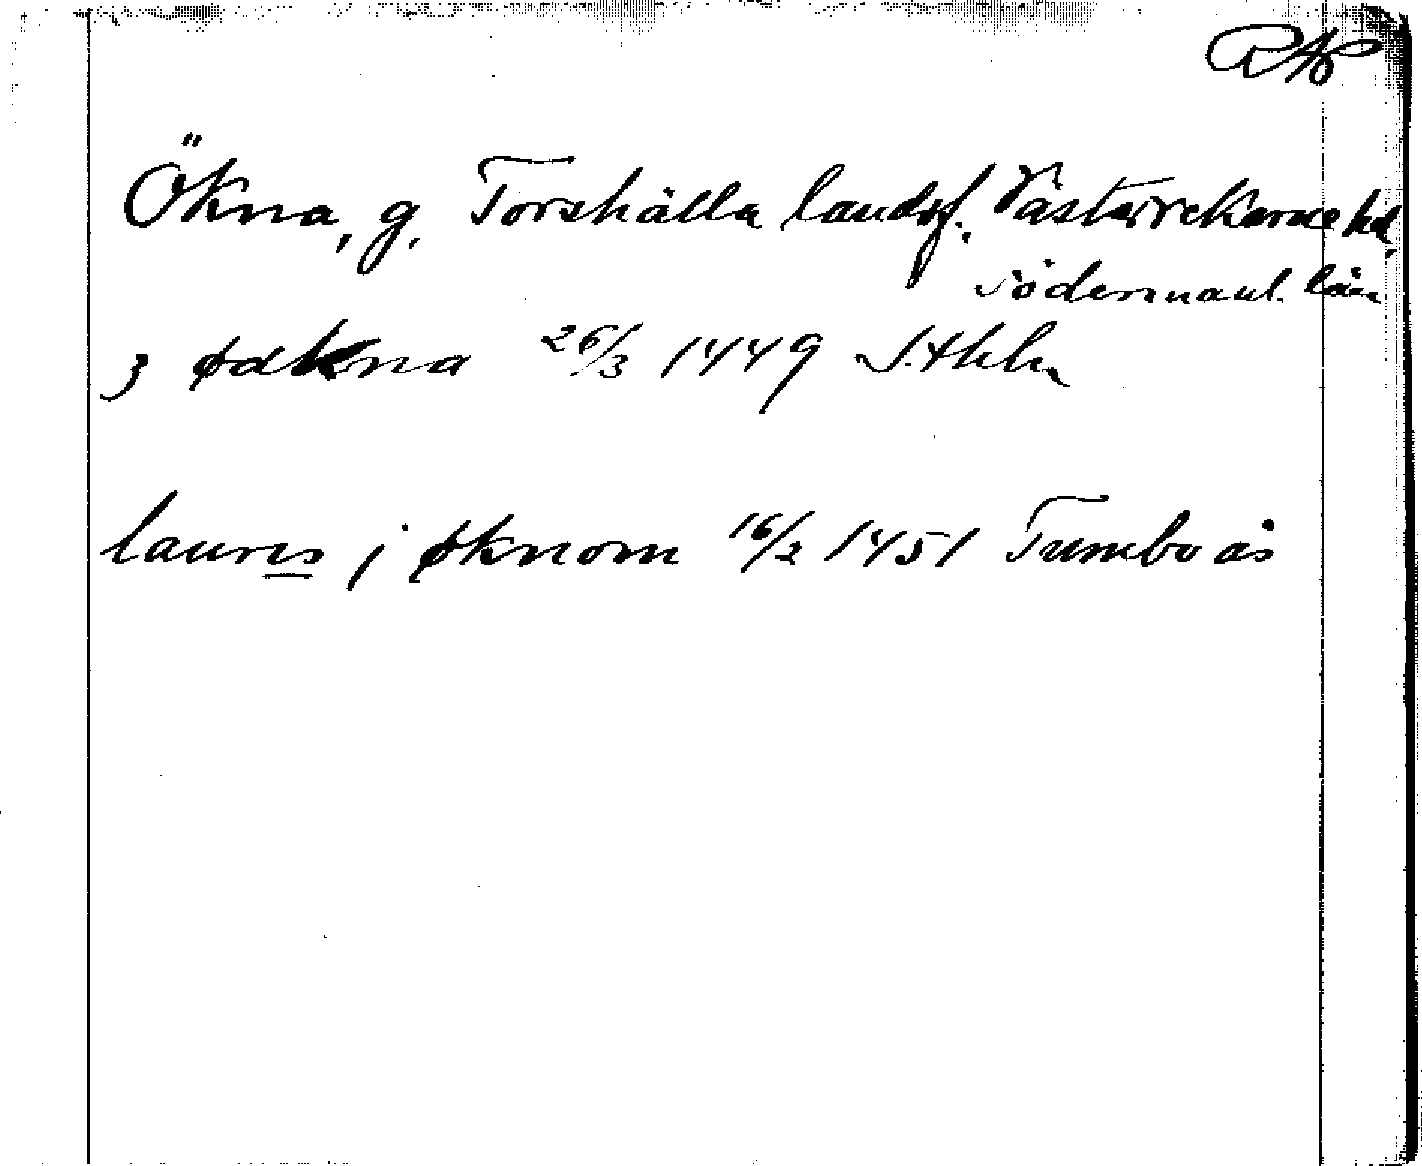 RAp
Ökna, g, Torshälla landsf. Västerrekarne hd,
Södermanl. län
ȝ ødkna 26/3 1449 S.thlm
laur̲i̲s̲ j øknom 16/2 1451 Tumbo ås